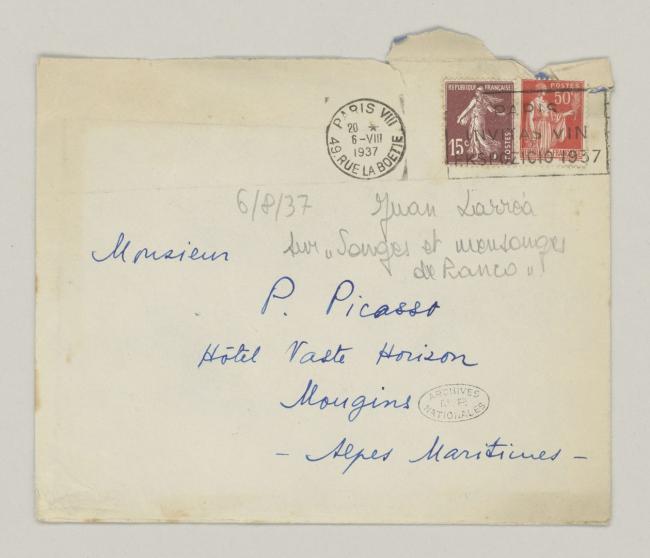 PARIS VIII
20 *
6-VIII
1937
49. RUE LA BOETIE
REPUBLIQUE FRANÇAISE
15c
POSTES
POSTES
50c
PARIS
INVITAS VIN
EKSPOZICIO 1937
6/8/37 Juan Larréa
sur "Songes et mensonges
de Franco"!
Monsieur
P. Picasso
Hôtel Vaste Horizon
Mougins
ARCHIVES
NATIONALES
- Alpes Maritimes -